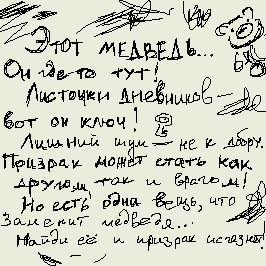 Этот медведь...
Он где то тут!
Листочки дневников –
вот он ключ!
Лишний шум – не к добру.
Призрак может стать как
другом, так и врагом!
Но есть одна вещь, что
Заменит медведя...
Найди её и призрак исчезнет!